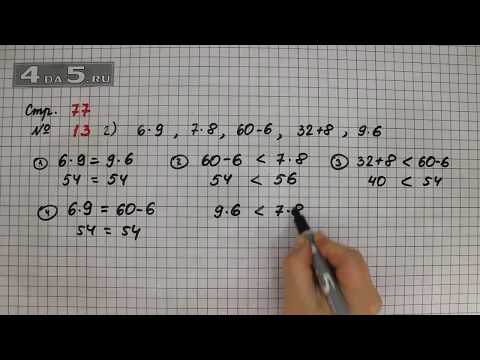 4DA5.RU
Стр. 77
№ 13 2) 6·9 , 7·8 , 60-6 , 32+8 , 9·6
① 6·9 = 9·6 ② 60-6 < 7·8 ③ 32+8 < 60-6
54 = 54 54 < 56 40 < 54
④ 6·9 = 60-6 9·6 < 7·8
54 = 54